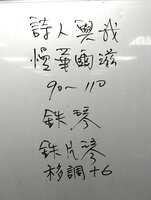 詩人與我
慢華爾滋
90~110
鉄琴
鉄片琴
移調+6